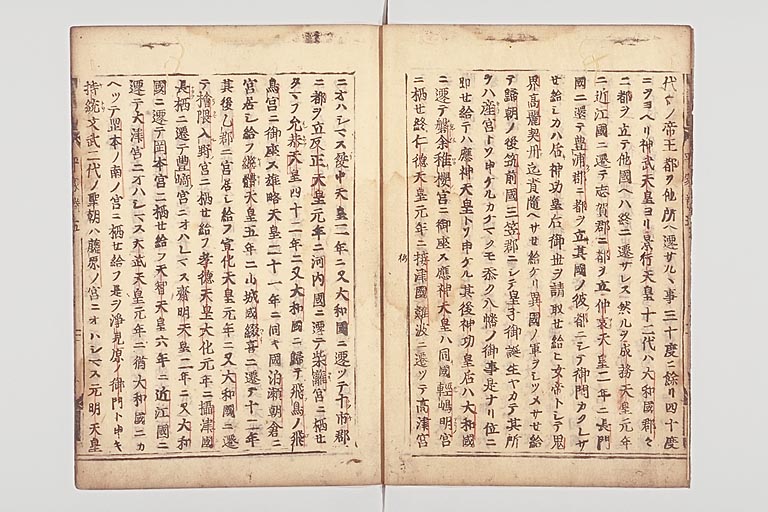 代々ノ帝王都ヲ他所ヘ遷サルヽ事三十度ニ餘リ四十度
ニヲヨヘリ神武天皇ヨリ景行天皇十二代ハ大和國郡々
ニ都ヲ立テ他國ヘハ終ニ遷サレス然ルヲ成務天皇元年
ニ近江國ニ遷テ志賀郡ニ都ヲ立仲哀天皇二年ニ長門
國ニ遷テ豊浦郡ニ都ヲ立其國ノ彼都ニシテ御門カクレサ
せ給シカハ后神功皇后御世ヲ請取せ給ヒ女帝トシテ鬼
界高麗契丹迄責随ヘサせ給ケリ異國ノ軍ヲシツメサせ給
テ歸朝ノ後筑前國三笠郡ニシテ皇子御誕生ヤカテ其所
ヲハ産宮トソ申ケルカケマクモ忝ク八幡ノ御事是ナリ位ニ
即せ給テハ應神天皇トソ申ケル其後神功皇后ハ大和國
ニ遷テ磐余稚櫻宮ニ御座ス應神天皇ハ同國輕嶋明宮
ニ栖せ給仁德天皇元年ニ摂津國難波ニ遷ツテ高津宮
ニオハシマス履中天皇二年ニ又大和國ニ遷ツテ十市郡
ニ都ヲ立反正天皇元年ニ河内國ニ遷テ柴籬宮ニ栖せ
タマフ允恭天皇四十二年ニ又大和國ニ歸テ飛鳥ノ飛
鳥宮ニ御座ス雄略天皇二十一年ニ同キ國泊瀬朝倉ニ
宮居シ給フ繼體天皇五年ニ山城國綴喜ニ遷テ十二年
其後乙郡ニ宮居シ給フ宣化天皇元年ニ又大和國ニ遷
テ檜隈入野宮ニ栖せ給フ孝德天皇大化元年ニ攝津國
長栖ニ遷テ豊崎宮ニオハシマス齋明天皇二年ニ又大和
國ニ遷テ岡本宮ニ栖せ給フ天智天皇六年ニ近江國ニ
遷テ大津宮ニオハシマス天武天皇元年ニ猶大和國ニカ
ヘツテ岡本ノ南ノ宮ニ栖せ給フ是ヲ浄見原ノ御門ト申キ
持統文武二代ノ聖朝ハ藤原ノ宮ニオハシマス元明天皇